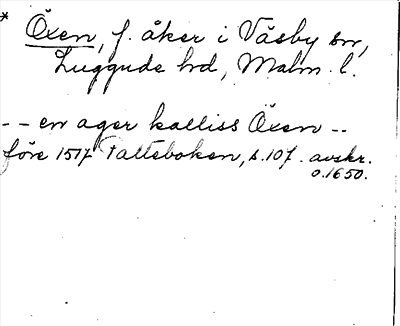 * Öxen, f. åker i Väsby sn,
Luggude hd, Malm. l.
-- en ager kalliss Öxen --
före 1517 Palteboken, s. 107. avskr.
o. 1650.